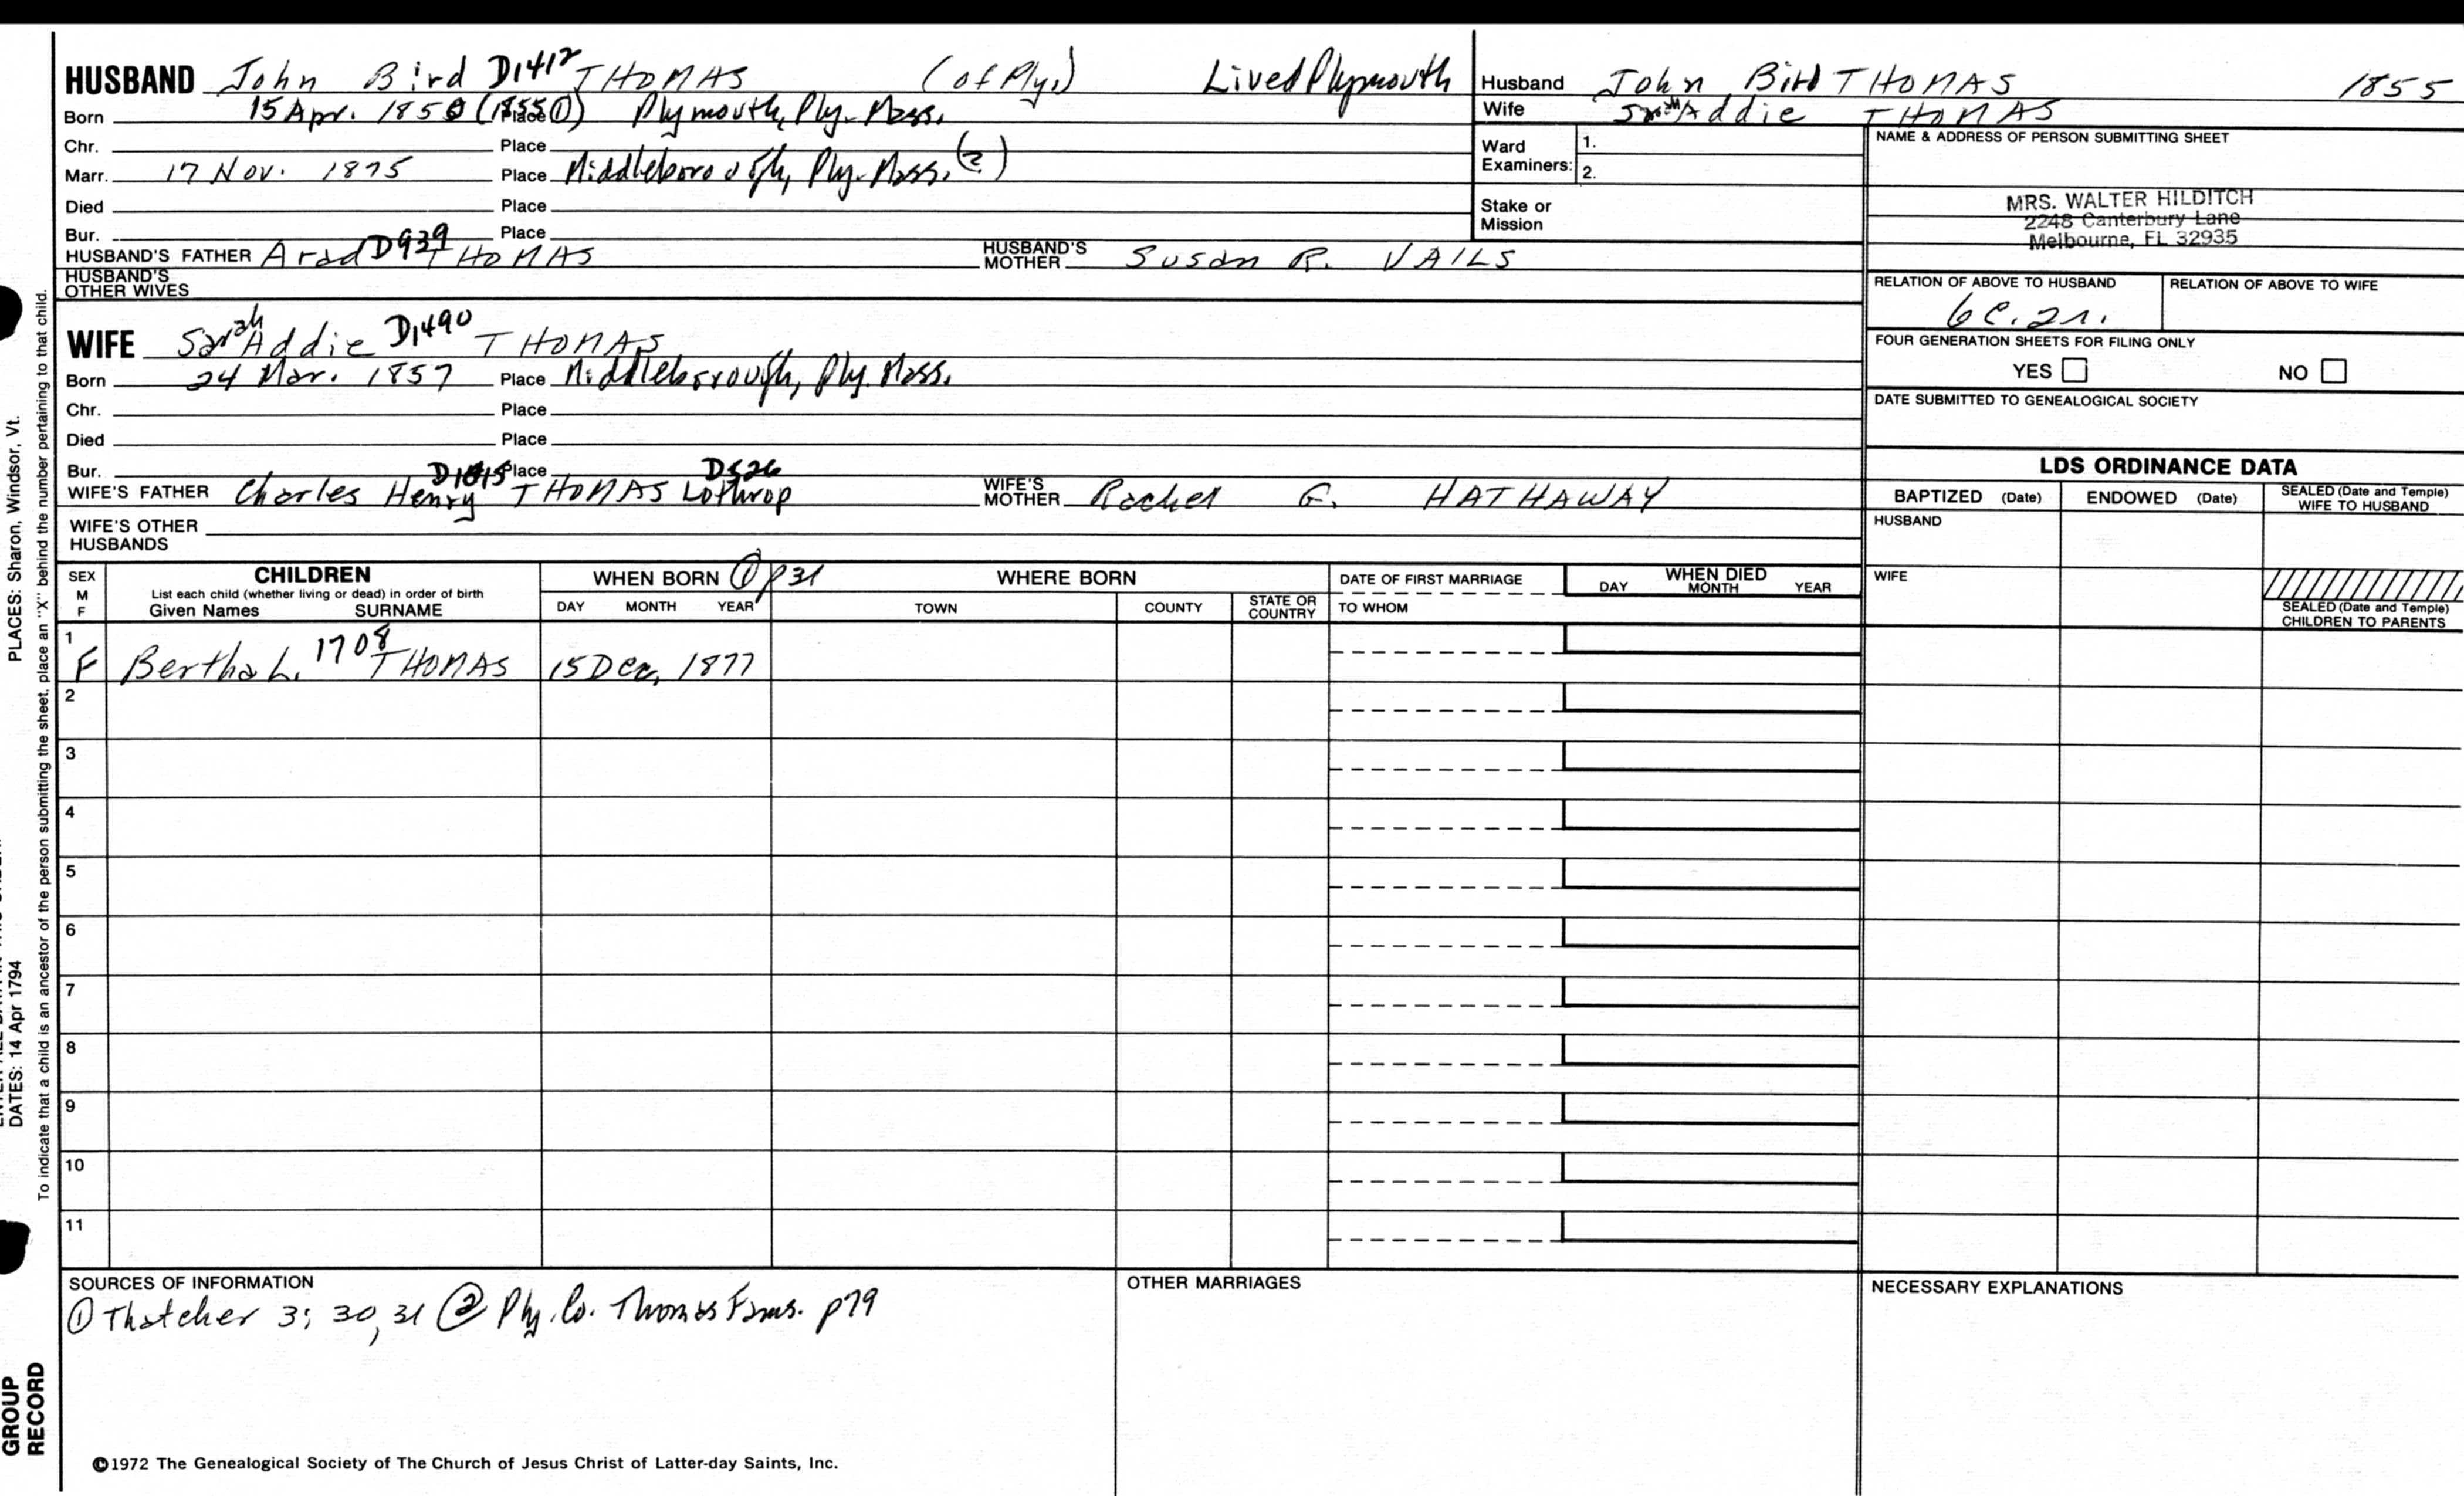 HUSBAND John Bird D1412 THOMAS (of Ply.) Lived Plymouth
Born 15 Apr. 1850 (1855 ①) Place Plymouth, Ply. Mass.
Chr. Place
Marr. 17 Nov. 1875 Place Middleborough, Ply. Mass. (2)
Died Place
Bur. Place
HUSBAND'S FATHER Arad D939 THOMAS HUSBAND'S MOTHER Susan R. VAILS
HUSBAND'S OTHER WIVES
WIFE Sarah Addie D1490 THOMAS
Born 24 Mar. 1857 Place Middleborough, Ply. Mass.
Chr. Place
Died Place
Bur. Place
WIFE'S FATHER Charles Henry THOMAS Lothrop D526 WIFE'S MOTHER Rachel G. HATHAWAY
WIFE'S OTHER HUSBANDS
Husband John Bird THOMAS 1855
Wife Sarah Addie THOMAS
Ward Examiners: 1.
2.
Stake or Mission
NAME & ADDRESS OF PERSON SUBMITTING SHEET
MRS. WALTER HILDITCH
2248 Canterbury Lane
Melbourne, FL 32935
RELATION OF ABOVE TO HUSBAND RELATION OF ABOVE TO WIFE
6C. 2r.
FOUR GENERATION SHEETS FOR FILING ONLY
YES NO
DATE SUBMITTED TO GENEALOGICAL SOCIETY
LDS ORDINANCE DATA
BAPTIZED (Date) ENDOWED (Date) SEALED (Date and Temple) WIFE TO HUSBAND
HUSBAND
WIFE
SEALED (Date and Temple) CHILDREN TO PARENTS
SEX M F
CHILDREN
List each child (whether living or dead) in order of birth
Given Names SURNAME
WHEN BORN ① p31 WHERE BORN
DAY MONTH YEAR TOWN COUNTY STATE OR COUNTRY
DATE OF FIRST MARRIAGE
TO WHOM
WHEN DIED
DAY MONTH YEAR
1
F Bertha L. 1708 THOMAS 15 Dec. 1877
2
3
4
5
6
7
8
9
10
11
SOURCES OF INFORMATION
① Thatcher 3; 30, 31 ② Ply. Co. Thomas Fams. p79
OTHER MARRIAGES
NECESSARY EXPLANATIONS
©1972 The Genealogical Society of The Church of Jesus Christ of Latter-day Saints, Inc.
PLACES: Sharon, Windsor, Vt.
DATES: 14 Apr 1794
To indicate that a child is an ancestor of the person submitting the sheet, place an "X" behind the number pertaining to that child.
GROUP
RECORD